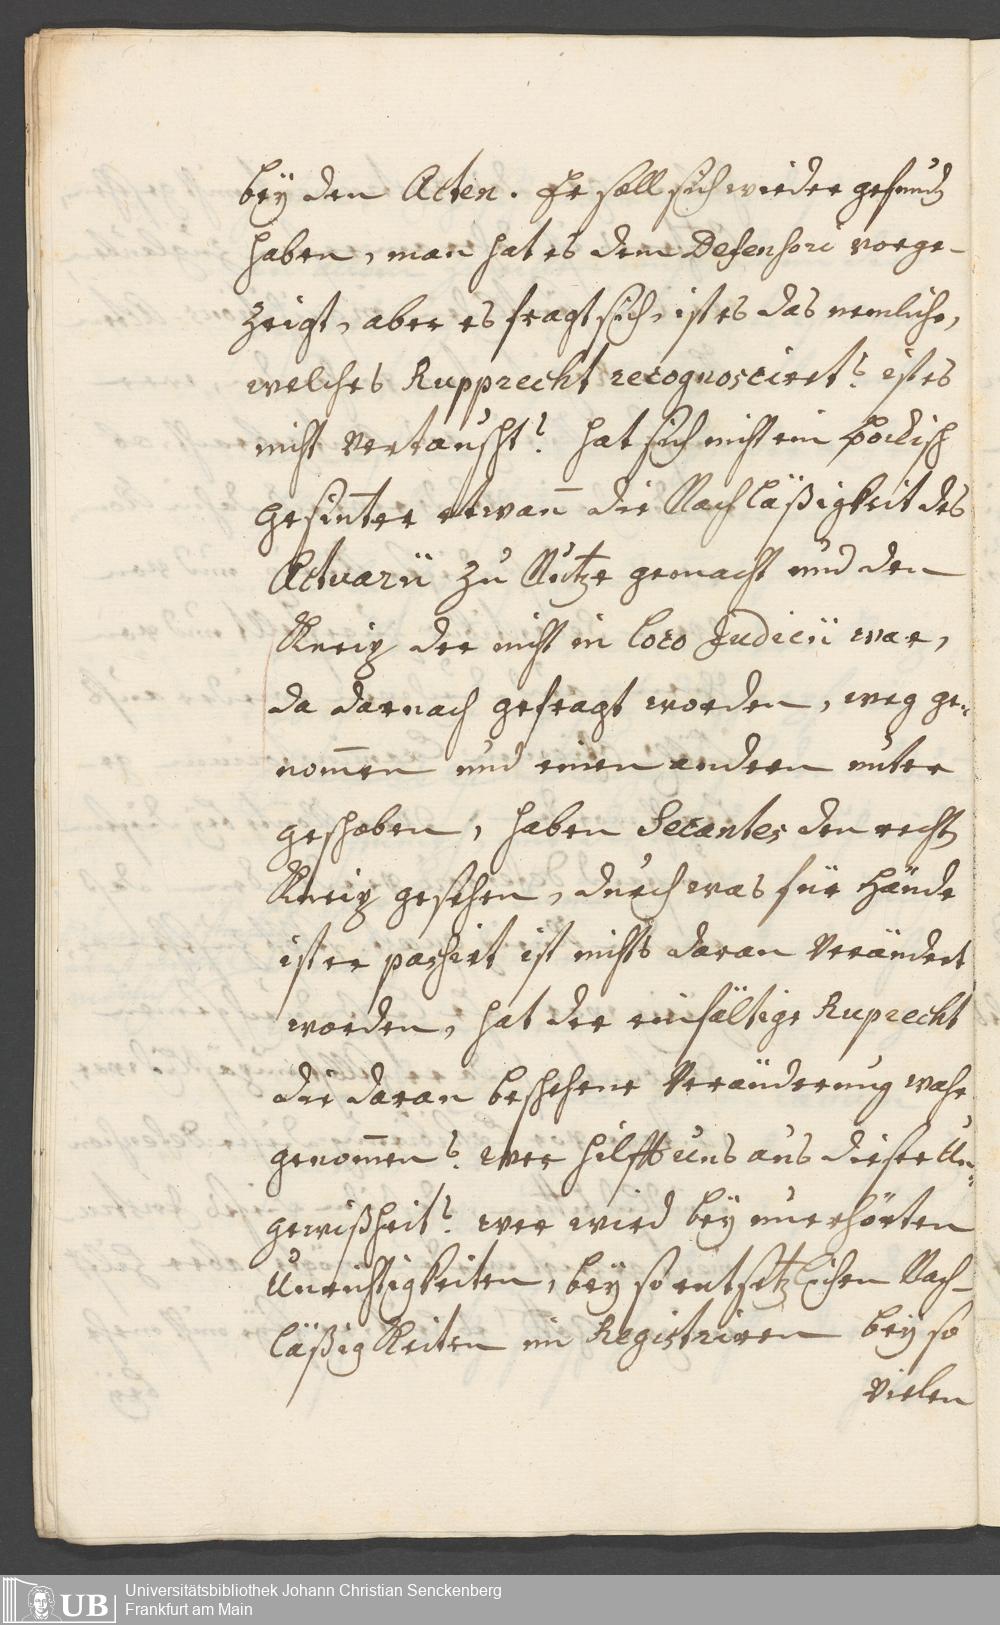 bey den Acten. Er soll sich wieder gefund
haben, man hat es dem Defensori vorge-
zeigt, aber es fragt sich, ist es das nemliche,
welches Rupprecht recognosciret? ist es
nicht vertauscht? hat sich nicht ein
gesinter etwan die Nachläßigkeit des
Actuarii zu Nutze gemacht und den
Kneip der nicht in loco Judicii war,
da darnach gefragt worden, weg ge-
nomen und einen andern unter
geschoben, haben Secantes den recht
Kneip gesehen, durch was für Hände
ist er passirt ist nichts daran verändert
worden, hat der einfältige Ruprecht
die daran beschehene Veränderung wahr
genomen? wer hilfft uns aus dieser Un-
gewißheit? wer wird bey unerhörten
Unrichtigkeiten, bey so entsetzlichen Nach-
läßigkeiten im Registriren bey so
vielen
UB
Universitätsbibliothek Johann Christian Senckenberg
Frankfurt am Main